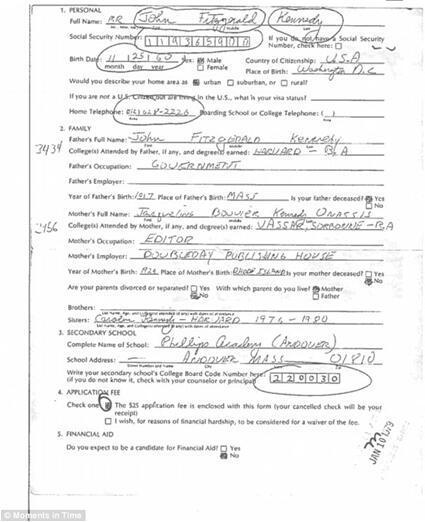 1. PERSONAL
Full Name: John Fitzgerald Kennedy
Social Security Number:
If you do not have a Social Security Number, check here:
Birth Date: 11 25 60 Sex: Male Country of Citizenship: U.S.A
month day year Female Place of Birth: Washington D.C.
Would you describe your home area as urban suburban, or rural?
If you are not a U.S. Citizen but are living in the U.S., what is your visa status?
Home Telephone: Boarding School or College Telephone: ( )
2. FAMILY
Father's Full Name: John FITZGERALD Kennedy
3434 College(s) Attended by Father, if any, and degree(s) earned: HARVARD - B.A
Father's Occupation: GOVERNMENT
Father's Employer:
Year of Father's Birth: 1917 Place of Father's Birth: MASS Is your father deceased? Yes No
Mother's Full Name: Jacqueline BOUVIER Kennedy ONASSIS
College(s) Attended by Mother, if any, and degree(s) earned: VASSAR, SORBONNE - B.A
Mother's Occupation: EDITOR
Mother's Employer: DOUBLEDAY PUBLISHING HOUSE
Year of Mother's Birth: Place of Mother's Birth: RHODE ISLAND Is your mother deceased? Yes No
Are your parents divorced or separated? Yes No With which parent do you live? Mother Father
Brothers:
Sisters: Caroline Kennedy - HARVARD 1976 - 1980
3. SECONDARY SCHOOL
Complete Name of School: Phillips Academy (ANDOVER)
School Address - ANDOVER MASS 01810
Write your secondary school's College Board Code Number here: 220030
(if you do not know it, check with your counselor or principal)
4. APPLICATION FEE
Check one: The $25 application fee is enclosed with this form (your cancelled check will be your receipt)
I wish, for reasons of financial hardship, to be considered for a waiver of the fee.
JAN 10 1979
5. FINANCIAL AID
Do you expect to be a candidate for Financial Aid? Yes No
© Moments in Time